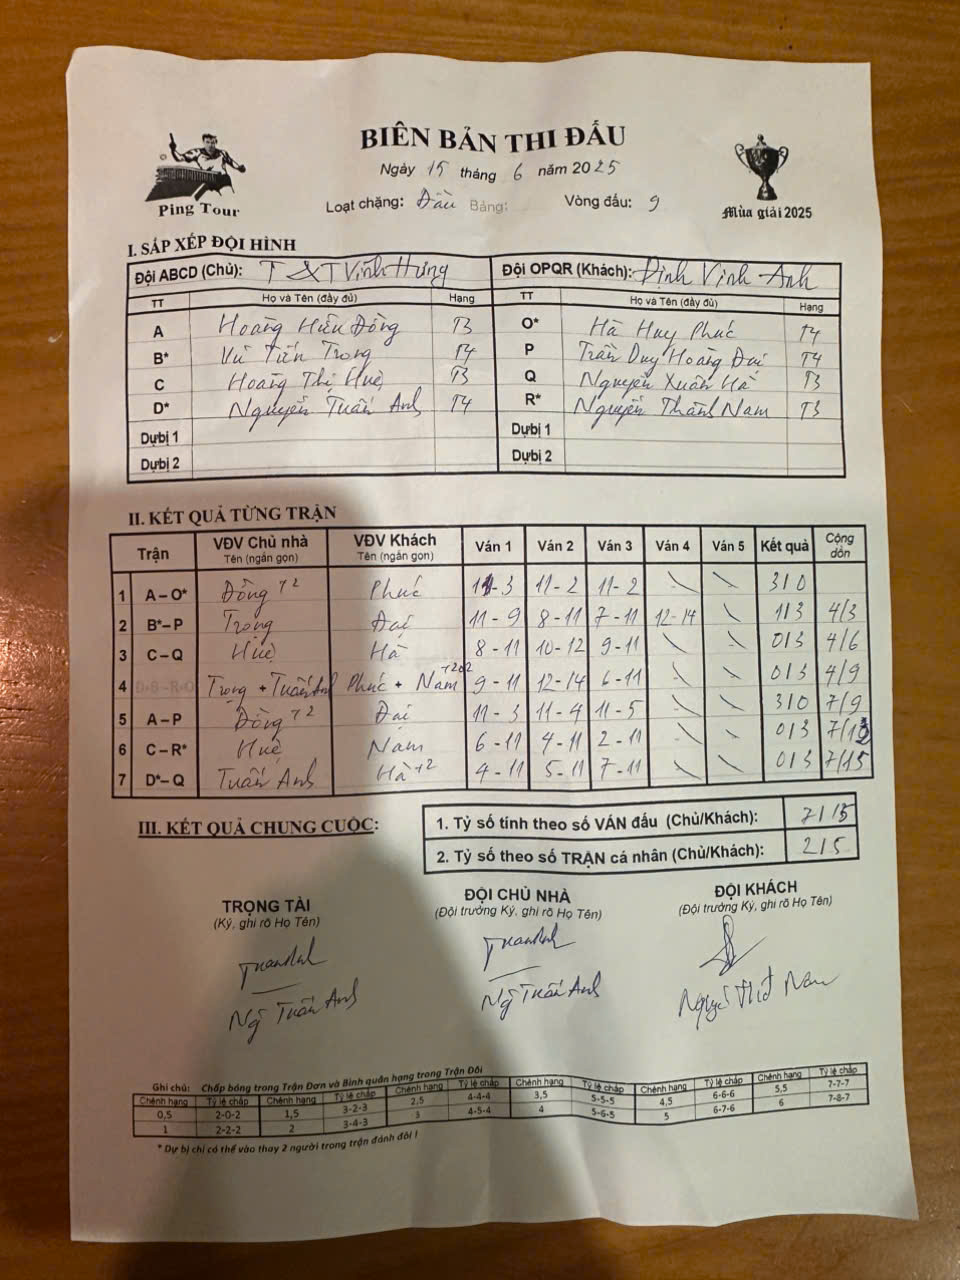 BIÊN BẢN THI ĐẤU
Ngày 15 tháng 6 năm 2025
Loạt chặng: Đầu Bảng: Vòng đấu: 9
Ping Tour
Mùa giải 2025
I. SẮP XẾP ĐỘI HÌNH
Đội ABCD (Chủ): T&T Vĩnh Hưng Đội OPQR (Khách): Định Vinh Anh
TT Họ và Tên (đầy đủ) Hạng TT Họ và Tên (đầy đủ) Hạng
A Hoàng Hiếu Đồng T3 O* Hà Huy Phúc T4
B* Vũ Tiến Trọng T4 P Trần Duy Hoàng Đại T4
C Hoàng Thị Huệ T3 Q Nguyễn Xuân Hà T3
D* Nguyễn Tuấn Anh T4 R* Nguyễn Thành Nam T3
Dự bị 1 Dự bị 1
Dự bị 2 Dự bị 2
II. KẾT QUẢ TỪNG TRẬN
Trận VĐV Chủ nhà Tên (ngắn gọn) VĐV Khách Tên (ngắn gọn) Ván 1 Ván 2 Ván 3 Ván 4 Ván 5 Kết quả Cộng dồn
1 A – O* Đồng +2 Phúc 11-3 11-2 11-2 \ \ 3/0
2 B* – P Trọng Đại 11-9 8-11 7-11 12-14 \ 1/3 4/3
3 C – Q Huệ Hà 8-11 10-12 9-11 \ \ 0/3 4/6
4 Trọng + Tuấn Anh Phúc + Nam +202 9-11 12-14 6-11 \ \ 0/3 4/9
5 A – P Đồng +2 Đại 11-3 11-4 11-5 \ \ 3/0 7/9
6 C – R* Huệ Nam 6-11 4-11 2-11 \ \ 0/3 7/12
7 D* – Q Tuấn Anh Hà +2 4-11 5-11 7-11 \ \ 0/3 7/15
III. KẾT QUẢ CHUNG CUỘC:
1. Tỷ số tính theo số VÁN đấu (Chủ/Khách): 7/15
2. Tỷ số theo số TRẬN cá nhân (Chủ/Khách): 2/5
TRỌNG TÀI ĐỘI CHỦ NHÀ ĐỘI KHÁCH
(Ký, ghi rõ Họ Tên) (Đội trưởng Ký, ghi rõ Họ Tên) (Đội trưởng Ký, ghi rõ Họ Tên)
TuanAnh TuanAnh
Ng Tuấn Anh Ng Tuấn Anh Nguyễn Nam
Ghi chú: Chấp bóng trong Trận Đơn và Bình quân hạng trong Trận Đôi
Chênh hạng Tỷ lệ chấp Chênh hạng Tỷ lệ chấp Chênh hạng Tỷ lệ chấp Chênh hạng Tỷ lệ chấp Chênh hạng Tỷ lệ chấp Chênh hạng Tỷ lệ chấp
0,5 2-0-2 1,5 3-2-3 2,5 4-4-4 3,5 5-5-5 4,5 6-6-6 5,5 7-7-7
1 2-2-2 2 3-4-3 3 4-5-4 4 5-6-5 5 6-7-6 6 7-8-7
* Dự bị chỉ có thể vào thay 2 người trong trận đánh đôi !